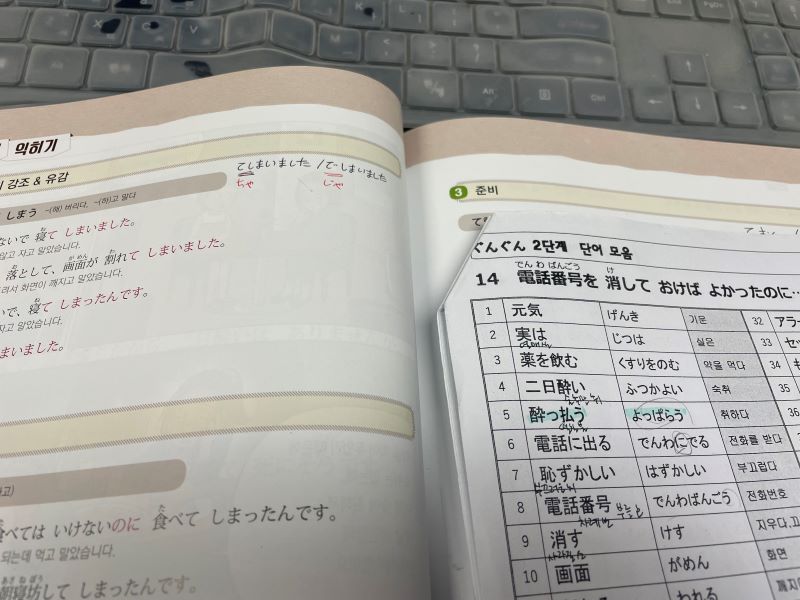 익히기
강조 & 유감
てしまいました / でしまいました
ちゃ じゃ
しまう ~(해) 버리다, ~(하)고 말다
ないで 寝て しまいました。
않고 자고 말았습니다.
落として、画面が 割れて しまいました。
려서 화면이 깨지고 말았습니다.
いで、寝て しまったんです。
자고 말았습니다.
まいました。
食べては いけないのに 食べて しまったんです。
되는데 먹고 말았습니다.
朝寝坊して しまったんです。
3 준비
ぐんぐん 2단계 단어 모음
14 電話番号を 消して おけば よかったのに…
1 元気 げんき 기운 32 アラー
2 実は じつは 실은 33 セッ
3 薬を飲む くすりをのむ 약을 먹다 34 も
4 二日酔い ふつかよい 숙취 35
5 酔っ払う よっぱらう 취하다 36
6 電話に出る でんわにでる 전화를 받다
7 恥ずかしい はずかしい 부끄럽다
8 電話番号 でんわばんごう 전화번호
9 消す けす 지우다,끄
10 画面 がめん 화면
われる 깨지